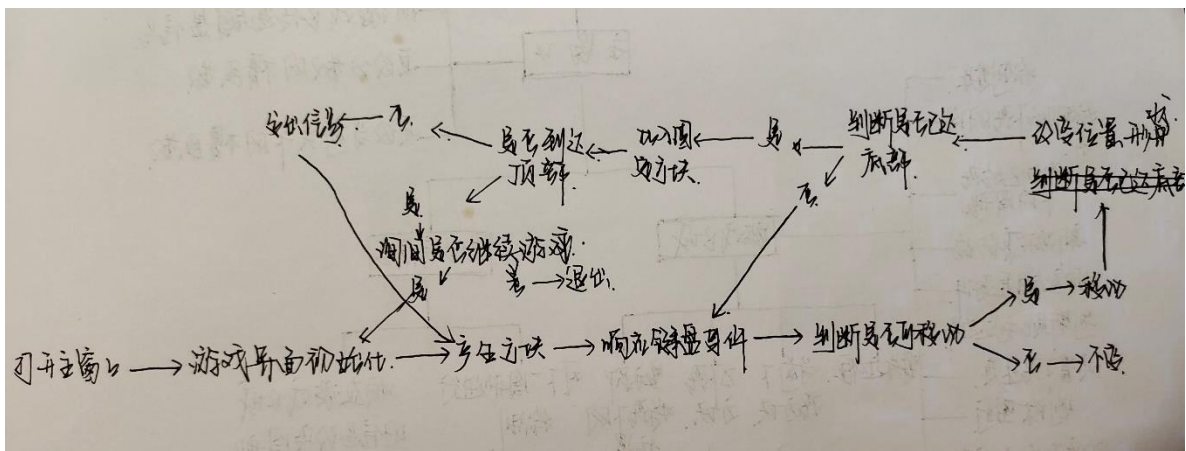 发出信号 ← 否
是否到达
顶部
加入固
定方块
是
判断是否已达
底部
改变位置、形状
判断是否已达底部
否
是
询问是否继续游戏
是
否 → 退出
是 → 移动
打开主窗口 → 游戏界面初始化 → 产生方块 → 响应键盘事件 → 判断是否可移动
否 → 不变